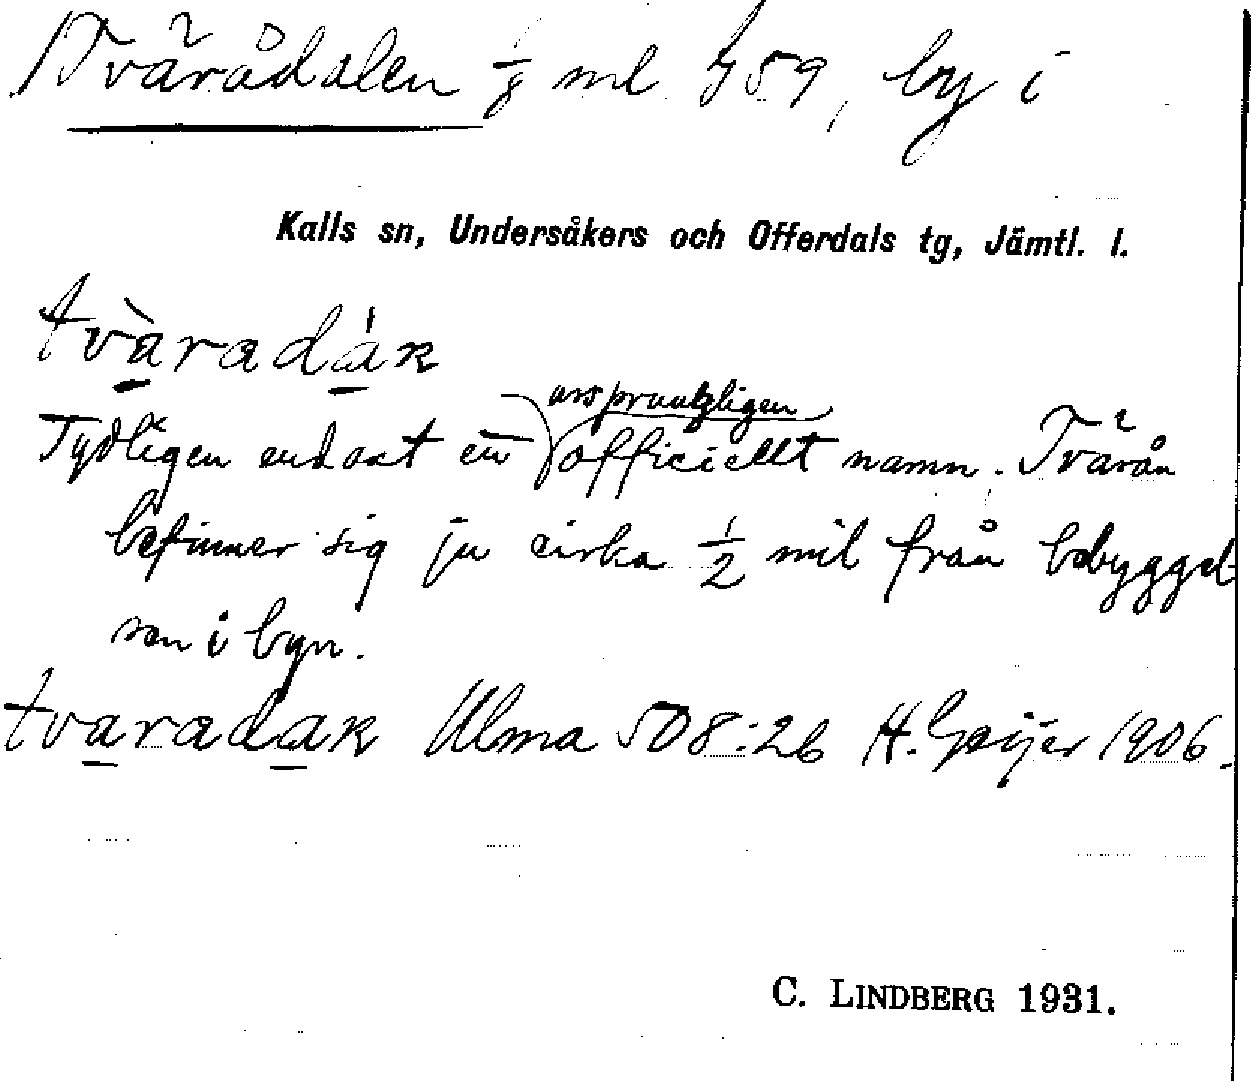 Tvärådalen 1/8 ml 459, by i
Kalls sn, Undersåkers och Offerdals tg, Jämtl. l.
tvàradák
Tydligen endast ett ursprungligen officiellt namn. Tvärån
befinner sig ju cirka 1/2 mil från bebyggel
sen i byn.
tvaradak Ulma 508:26 H. Geijer 1906.
C. LINDBERG 1931.